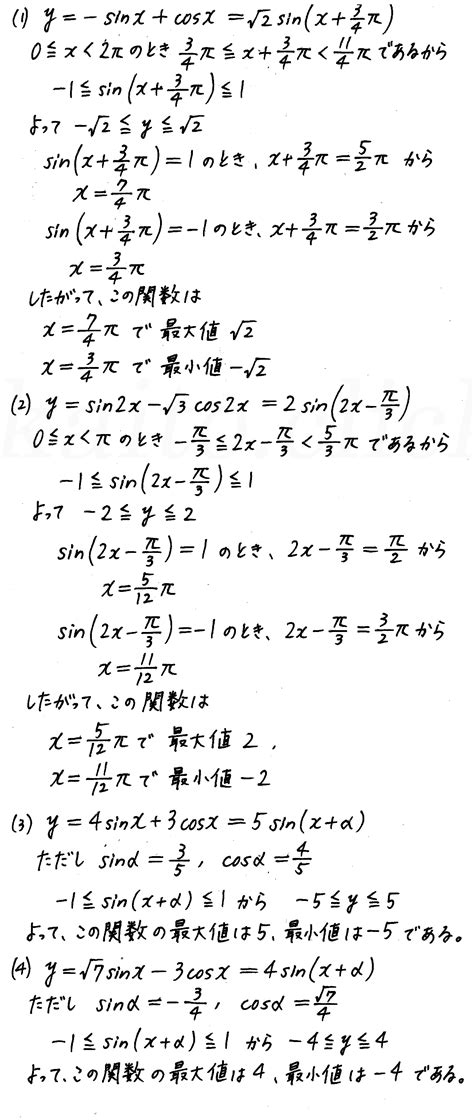 (1) y = -sinx + cosx = √2 sin(x + 3/4 π)
0 ≦ x < 2π のとき 3/4 π ≦ x + 3/4 π < 11/4 π であるから
-1 ≦ sin(x + 3/4 π) ≦ 1
よって -√2 ≦ y ≦ √2
sin(x + 3/4 π) = 1 のとき、x + 3/4 π = 5/2 π から
x = 7/4 π
sin(x + 3/4 π) = -1 のとき、x + 3/4 π = 3/2 π から
x = 3/4 π
したがって、この関数は
x = 7/4 π で 最大値 √2
x = 3/4 π で 最小値 -√2
(2) y = sin2x - √3 cos2x = 2 sin(2x - π/3)
0 ≦ x < π のとき -π/3 ≦ 2x - π/3 < 5/3 π であるから
-1 ≦ sin(2x - π/3) ≦ 1
よって -2 ≦ y ≦ 2
sin(2x - π/3) = 1 のとき、2x - π/3 = π/2 から
x = 5/12 π
sin(2x - π/3) = -1 のとき、2x - π/3 = 3/2 π から
x = 11/12 π
したがって、この関数は
x = 5/12 π で 最大値 2,
x = 11/12 π で 最小値 -2
(3) y = 4sinx + 3cosx = 5sin(x + α)
ただし sinα = 3/5, cosα = 4/5
-1 ≦ sin(x + α) ≦ 1 から -5 ≦ y ≦ 5
よって、この関数の最大値は5、最小値は-5である。
(4) y = √7 sinx - 3cosx = 4sin(x + α)
ただし sinα = -3/4, cosα = √7/4
-1 ≦ sin(x + α) ≦ 1 から -4 ≦ y ≦ 4
よって、この関数の最大値は4、最小値は-4である。